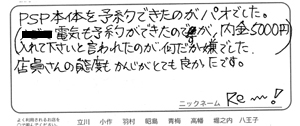 PSP本体を予約できたのがパオでした。
電気も予約ができたのですが、内金5000円
入れて下さいと言われたのが、何だか嫌でした。
店員さんの態度もかんじがとても良かたです。
ニックネーム Re〜!
よく利用されるお店を
立川 小作 羽村 昭島 青梅 高幡 堀之内 八王子